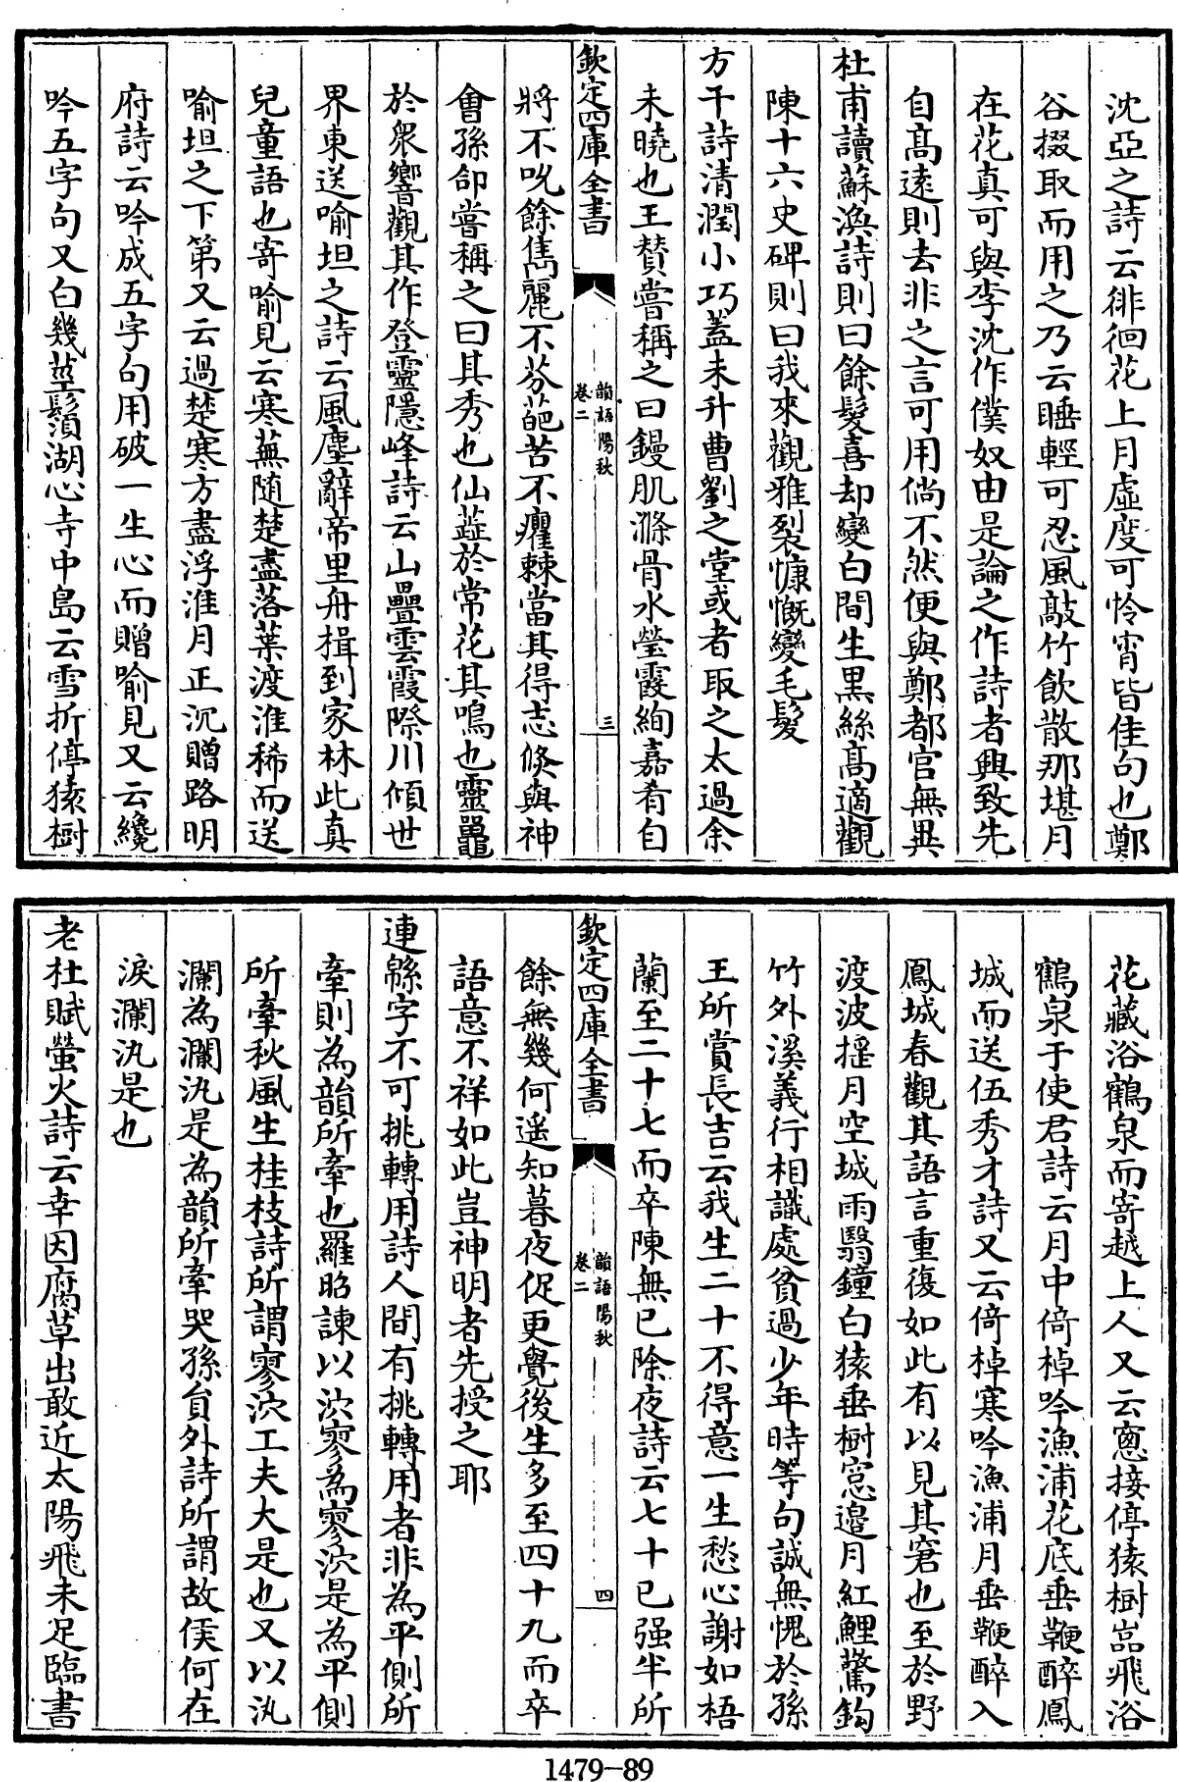 沈亞之詩云徘徊花上月虛度可憐宵皆佳句也鄭
谷掇取而用之乃云睡輕可忍風敲竹飲散那堪月
在花真可與李沈作僕奴由是論之作詩者興致先
自髙遠則去非之言可用倘不然便與鄭都官無異
杜甫讀蘇渙詩則曰餘髮喜却變白間生黑絲髙適觀
陳十六史碑則曰我來觀雅裂慷慨變毛髮
方干詩清潤小巧蓋未升曹劉之堂或者取之太過余
未曉也王贊嘗稱之曰鏝肌滌骨氷瑩霞絢嘉肴自
欽定四庫全書
韻語陽秋
卷二
三
將不吮餘雋麗不芬葩苦不癯棘當其得志倐與神
會孫郃嘗稱之曰其秀也仙蕋於常花其鳴也靈鼉
於衆響觀其作登靈隱峰詩云山疊雲霞際川傾世
界東送喻坦之詩云風塵辭帝里舟揖到家林此真
兒童語也寄喻見云寒蕪随楚盡落葉渡淮稀而送
喻坦之下第又云過楚寒方盡浮淮月正沉贈路明
府詩云吟成五字句用破一生心而贈喻見又云纔
吟五字句又白幾莖鬚湖心寺中島云雪折停猿樹
花藏浴鶴泉而寄越上人又云窻接停猿樹嵓飛浴
鶴泉于使君詩云月中倚棹吟漁浦花底垂鞭醉鳳
城而送伍秀才詩又云倚棹寒吟漁浦月垂鞭醉入
鳳城春觀其語言重復如此有以見其窘也至於野
渡波揺月空城雨翳鐘白猿垂樹窓邉月紅鯉驚鈎
竹外溪義行相識處貧過少年時等句誠無愧於孫
王所賞長吉云我生二十不得意一生愁心謝如梧
蘭至二十七而卒陳無已除夜詩云七十已强半所
欽定四庫全書
韻語陽秋
卷二
四
餘無幾何遥知暮夜促更覺後生多至四十九而卒
語意不祥如此豈神明者先授之耶
連緜字不可挑轉用詩人間有挑轉用者非為平側所
牽則為韻所牽也羅昭諫以泬寥為寥泬是為平側
所牽秋風生桂枝詩所謂寥泬工夫大是也又以汍
瀾為瀾汍是為韻所牽哭孫貟外詩所謂故侯何在
淚瀾汍是也
老杜賦螢火詩云幸因腐草出敢近太陽飛未足臨書
1479-89